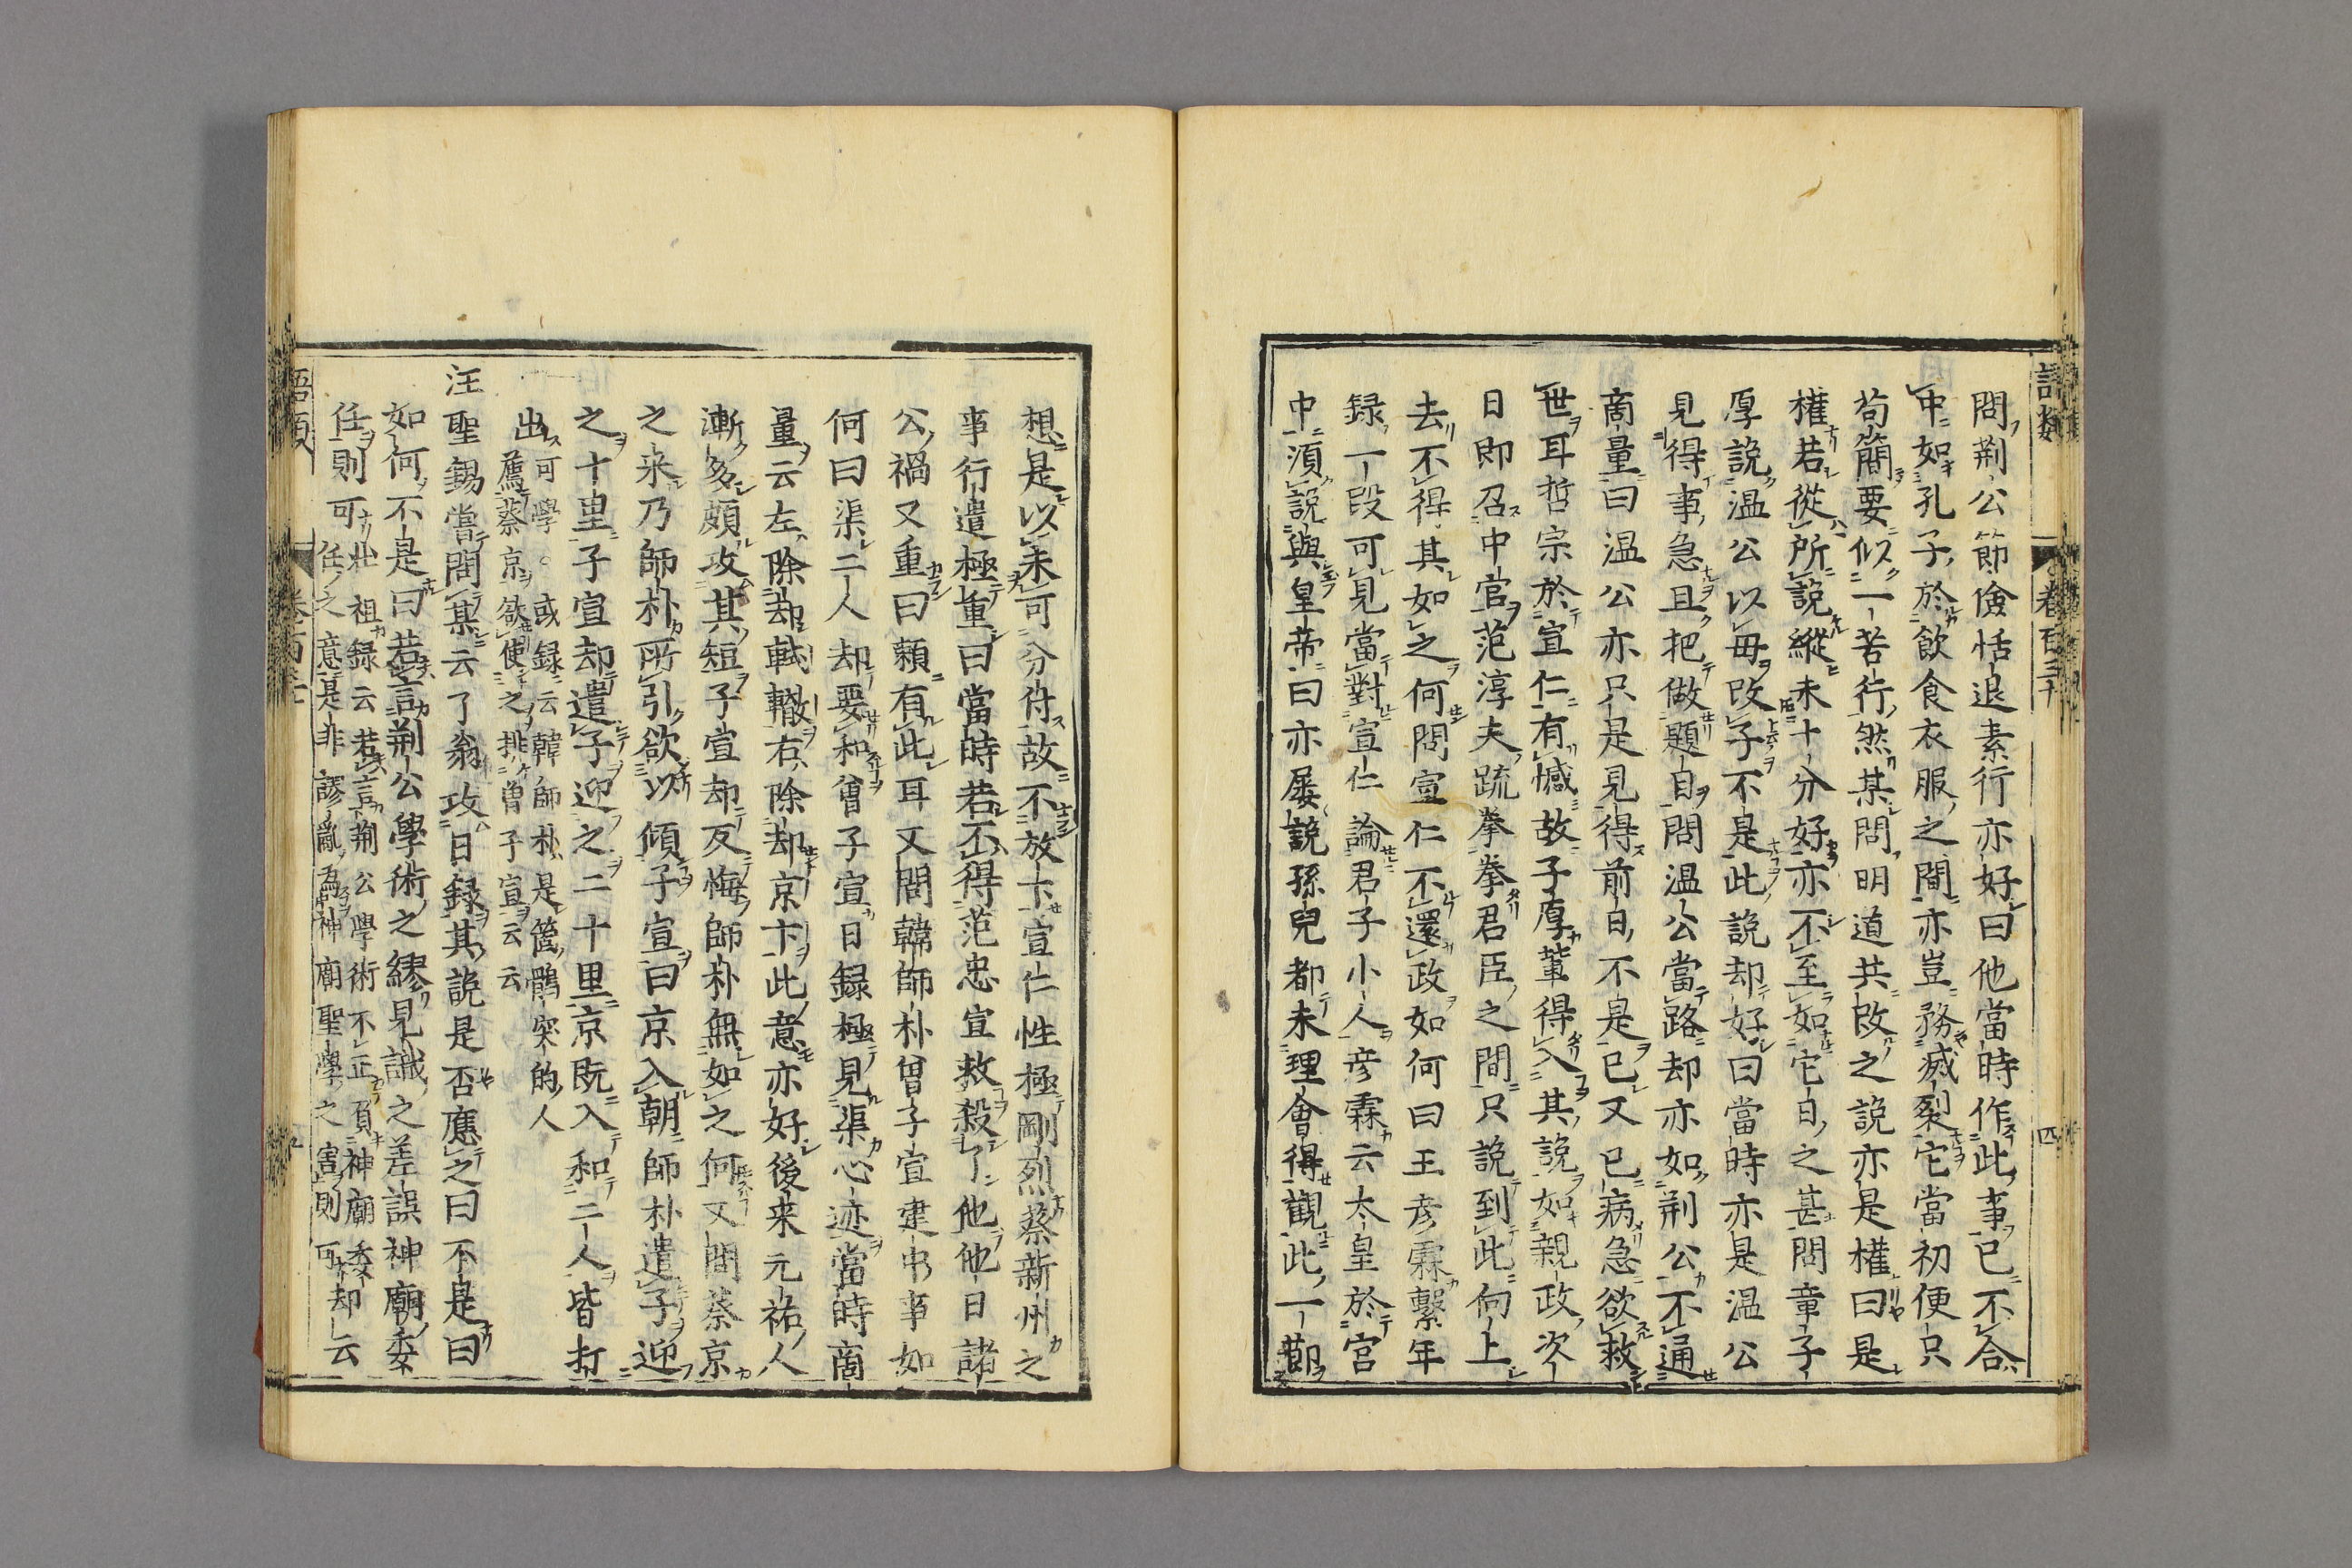 語類
卷百三十
四
問荆公節儉恬退素行亦好曰他當時作此事已不合
中如孔子於飲食衣服之間亦豈務滅裂它當初便只
苟簡要似一苦行然某問明道共改之說亦是權曰是
權若從所說縱未十分好亦不至如它日之甚問章子
厚說温公以母改子不是此說却好曰當時亦是温公
見得事急且把做題目問温公當路却亦如荆公不通
商量曰温公亦只是見得前日不是已又已病急欲救
世耳哲宗於宣仁有憾故子厚輩得入其說如親政次
日即召中官范淳夫疏拳拳君臣之間只說到此向上
去不得其如之何問宣仁不還政如何曰王彦霖繫年
録一段可見當對宣仁論君子小人彦霖云太皇於宮
中須說與皇帝曰亦屢說孫兒都未理會得觀此一節
想是以未可分付故不放卞宣仁性極剛烈蔡新州之
事行遣極重曰當時若不得范忠宣救殺了他他日諸
公禍又重曰頼有此耳又問韓師朴曾子宣建中事如
何曰渠二人却要和曾子宣日録極見渠心迹當時商
量云左除却軾轍右除却京卞此意亦好後来元祐人
漸多頗攻其短子宣却反悔師朴無如之何又問蔡京
之来乃師朴所引欲以傾子宣曰京入朝師朴遣子迎
之十里子宣却遣子迎之二十里京既入和二人皆打
出可學。或録云韓師朴是箇鶻突的人
薦蔡京欲使之排曾子宣云云
汪聖錫嘗問某云了翁攻日録其說是否應之曰不是曰
如何不是曰若言荆公學術之繆見識之差誤神廟委
任則可壯祖録云若言荆公學術不正負神廟委
任之意是非謬亂為神廟聖學之害則可却云
語類